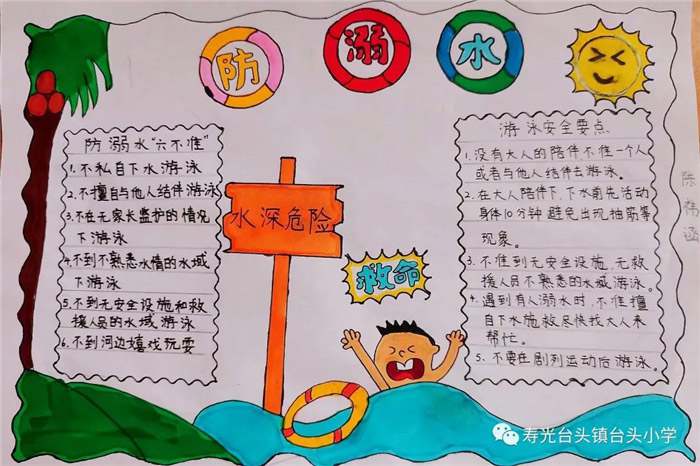 防溺水
防溺水"六不准"
1、不私自下水游泳
2、不擅自与他人结伴游泳
3、不在无家长监护的情况
下游泳
4、不到不熟悉水情的水域
下游泳
5、不到无安全设施和救
援人员的水域游泳
6、不到河边嬉戏玩耍
水深危险
救命
游泳安全要点
1、没有大人的陪伴不准一个人
或者与他人结伴去游泳。
2、在大人陪伴下,下水前先活动
身体10分钟避免出现抽筋等
现象。
3、不准到无安全设施,无救
援人员不熟悉的水域游泳。
4、遇到有人溺水时,不准擅
自下水施救尽快找大人来
帮忙。
5、不要在剧烈运动后游泳。
寿光台头镇台头小学